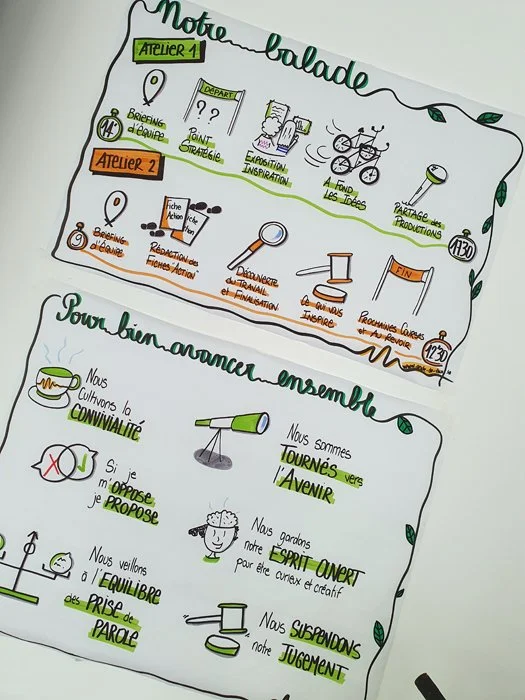 Notre balade
ATELIER 1
DÉPART
? ?
14H
BRIEFING
d'ÉQUIPE
POINT
STRATÉGIE
EXPOSITION
INSPIRATION
A FOND
LES IDÉES
PARTAGE des
PRODUCTIONS
17H30
ATELIER 2
Fiche
Action
FIN
9H
BRIEFING
d'ÉQUIPE
RÉDACTION des
FICHES "ACTION"
DÉCOUVERTE
du TRAVAIL
et FINALISATION
CE QUI VOUS
INSPIRE
PROCHAINES COURSES
et AU REVOIR
12H30
Pour bien avancer ensemble
Nous
cultivons la
CONVIVIALITÉ
Nous sommes
TOURNÉS vers
l'AVENIR
Si je
m'OPPOSE
je PROPOSE
Nous gardons
notre ESPRIT OUVERT
pour être curieux et créatif
Nous veillons
à l'EQUILIBRE
des PRISE de
PAROLE
Nous SUSPENDONS
notre JUGEMENT